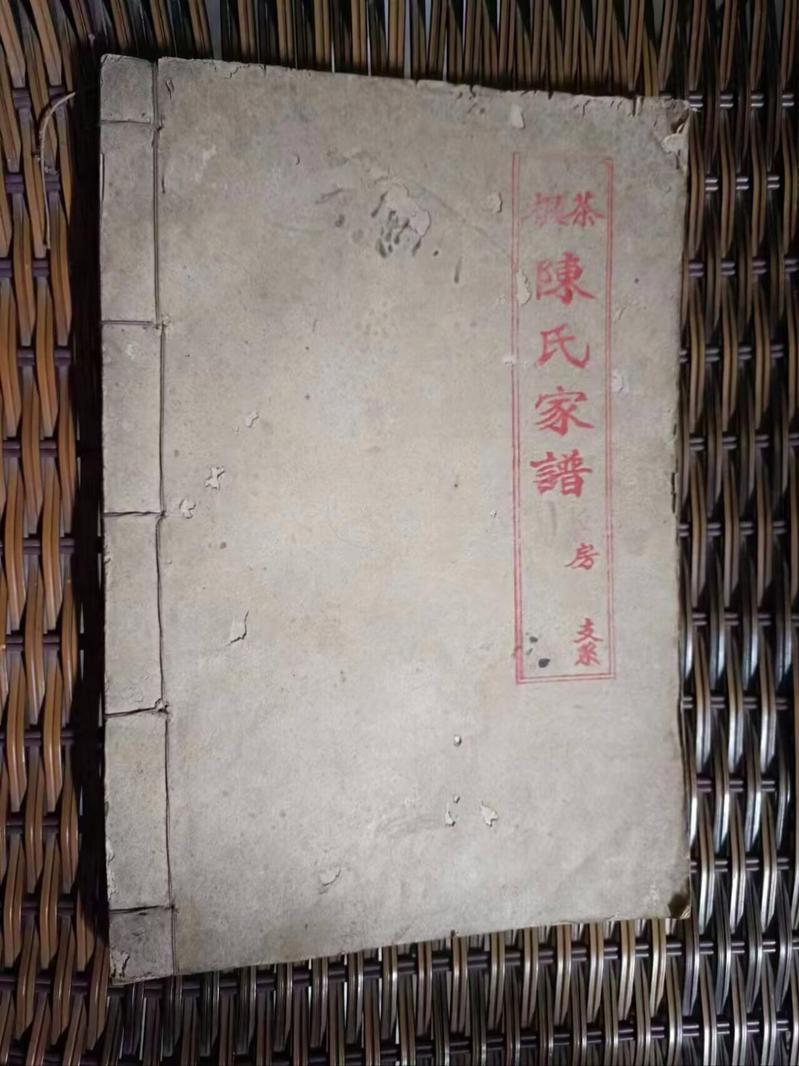 茶
陳氏家譜
房 支系